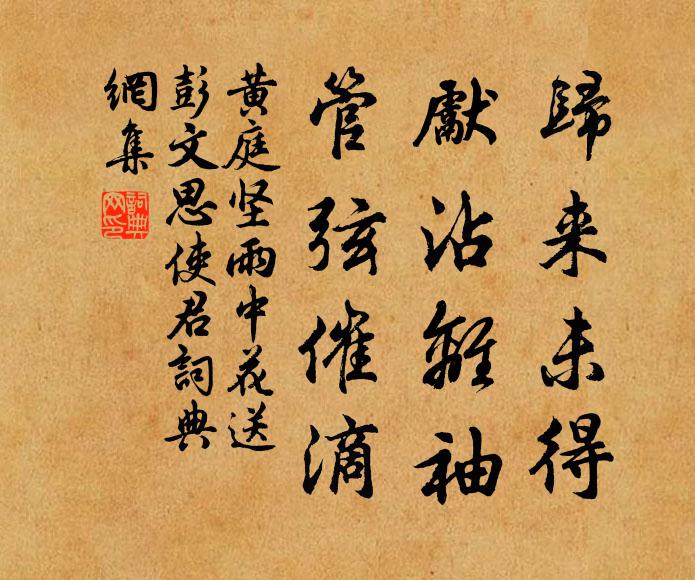 歸来未得
獻沾離袖
管弦催滴
黄庭坚雨中花送
彭文思使君詞典
網集
詞典
网印